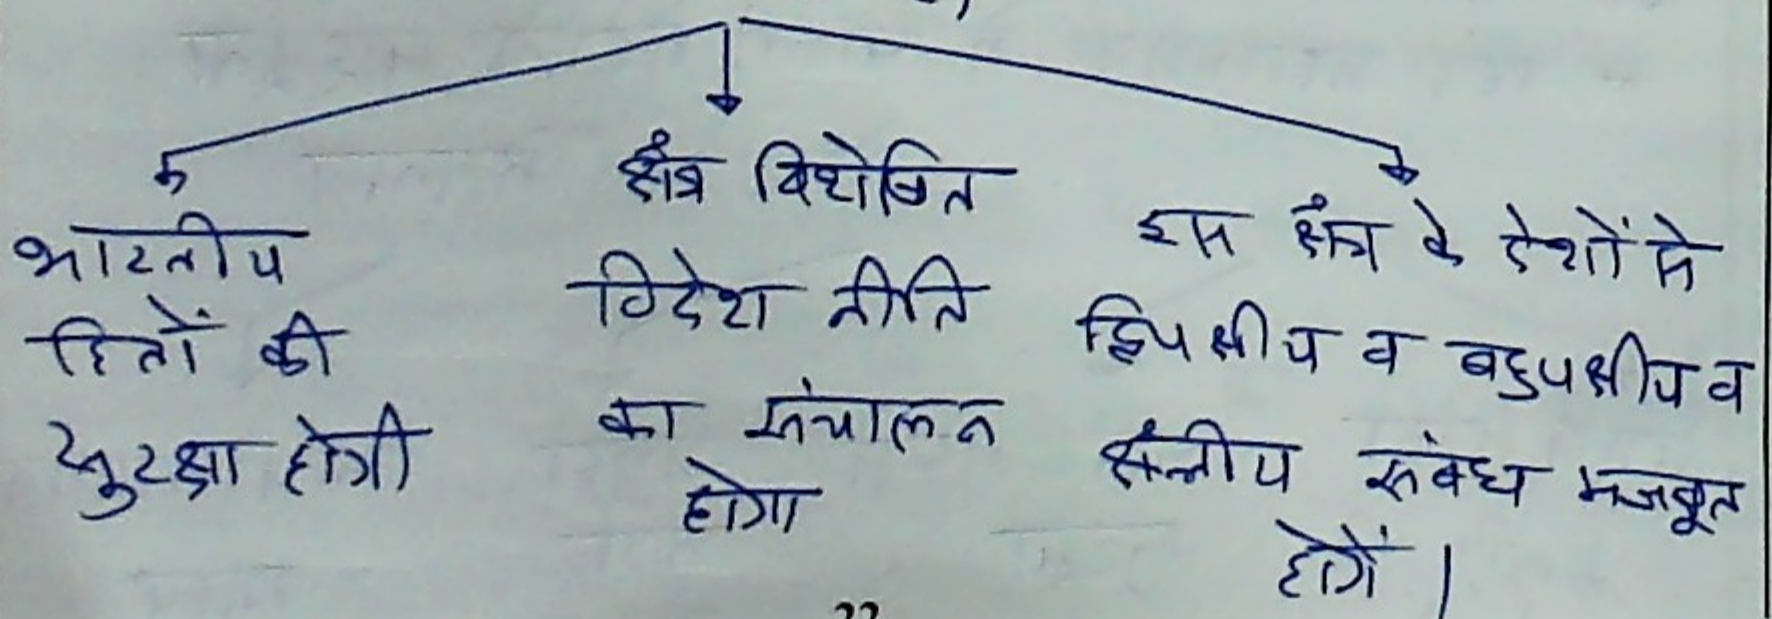 भारतीय
हितों की
सुरक्षा होगी
क्षेत्र विशेषित
विदेश नीति
का संचालन
होगा
इस क्षेत्र के देशों से
द्विपक्षीय व बहुपक्षीय व
क्षेत्रीय संबंध मजबूत
होगें।